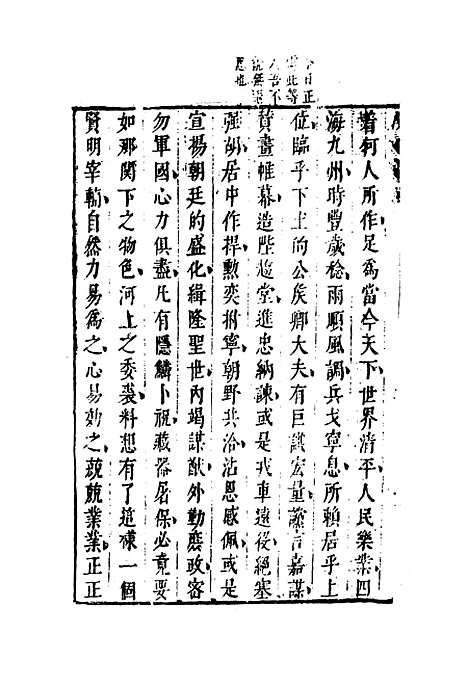 人吾不
着柯人所作足爲當今天下世界清平人民樂業四
海九州時豐歲稔雨順風調兵戈寧息所賴居乎上
位臨乎下土的公侯卿大夫有巨識宏量讜言嘉謀
贊畫帷幕造陛趨堂進忠納諫或是戎車遠役絕塞
強胡居中作捍勲奕拊寧朝野共洽沾恩感佩或是
宣楊朝廷的盛化緝隆聖世内竭謀猷外勤庶政密
勿軍國心力俱盡凡有隱鱗卜祝藏器屠保必竟要
如那関下之物色河上之委裘料想有了這様一個
賢明宰輔自然力易爲之心易効之兢兢業業正正